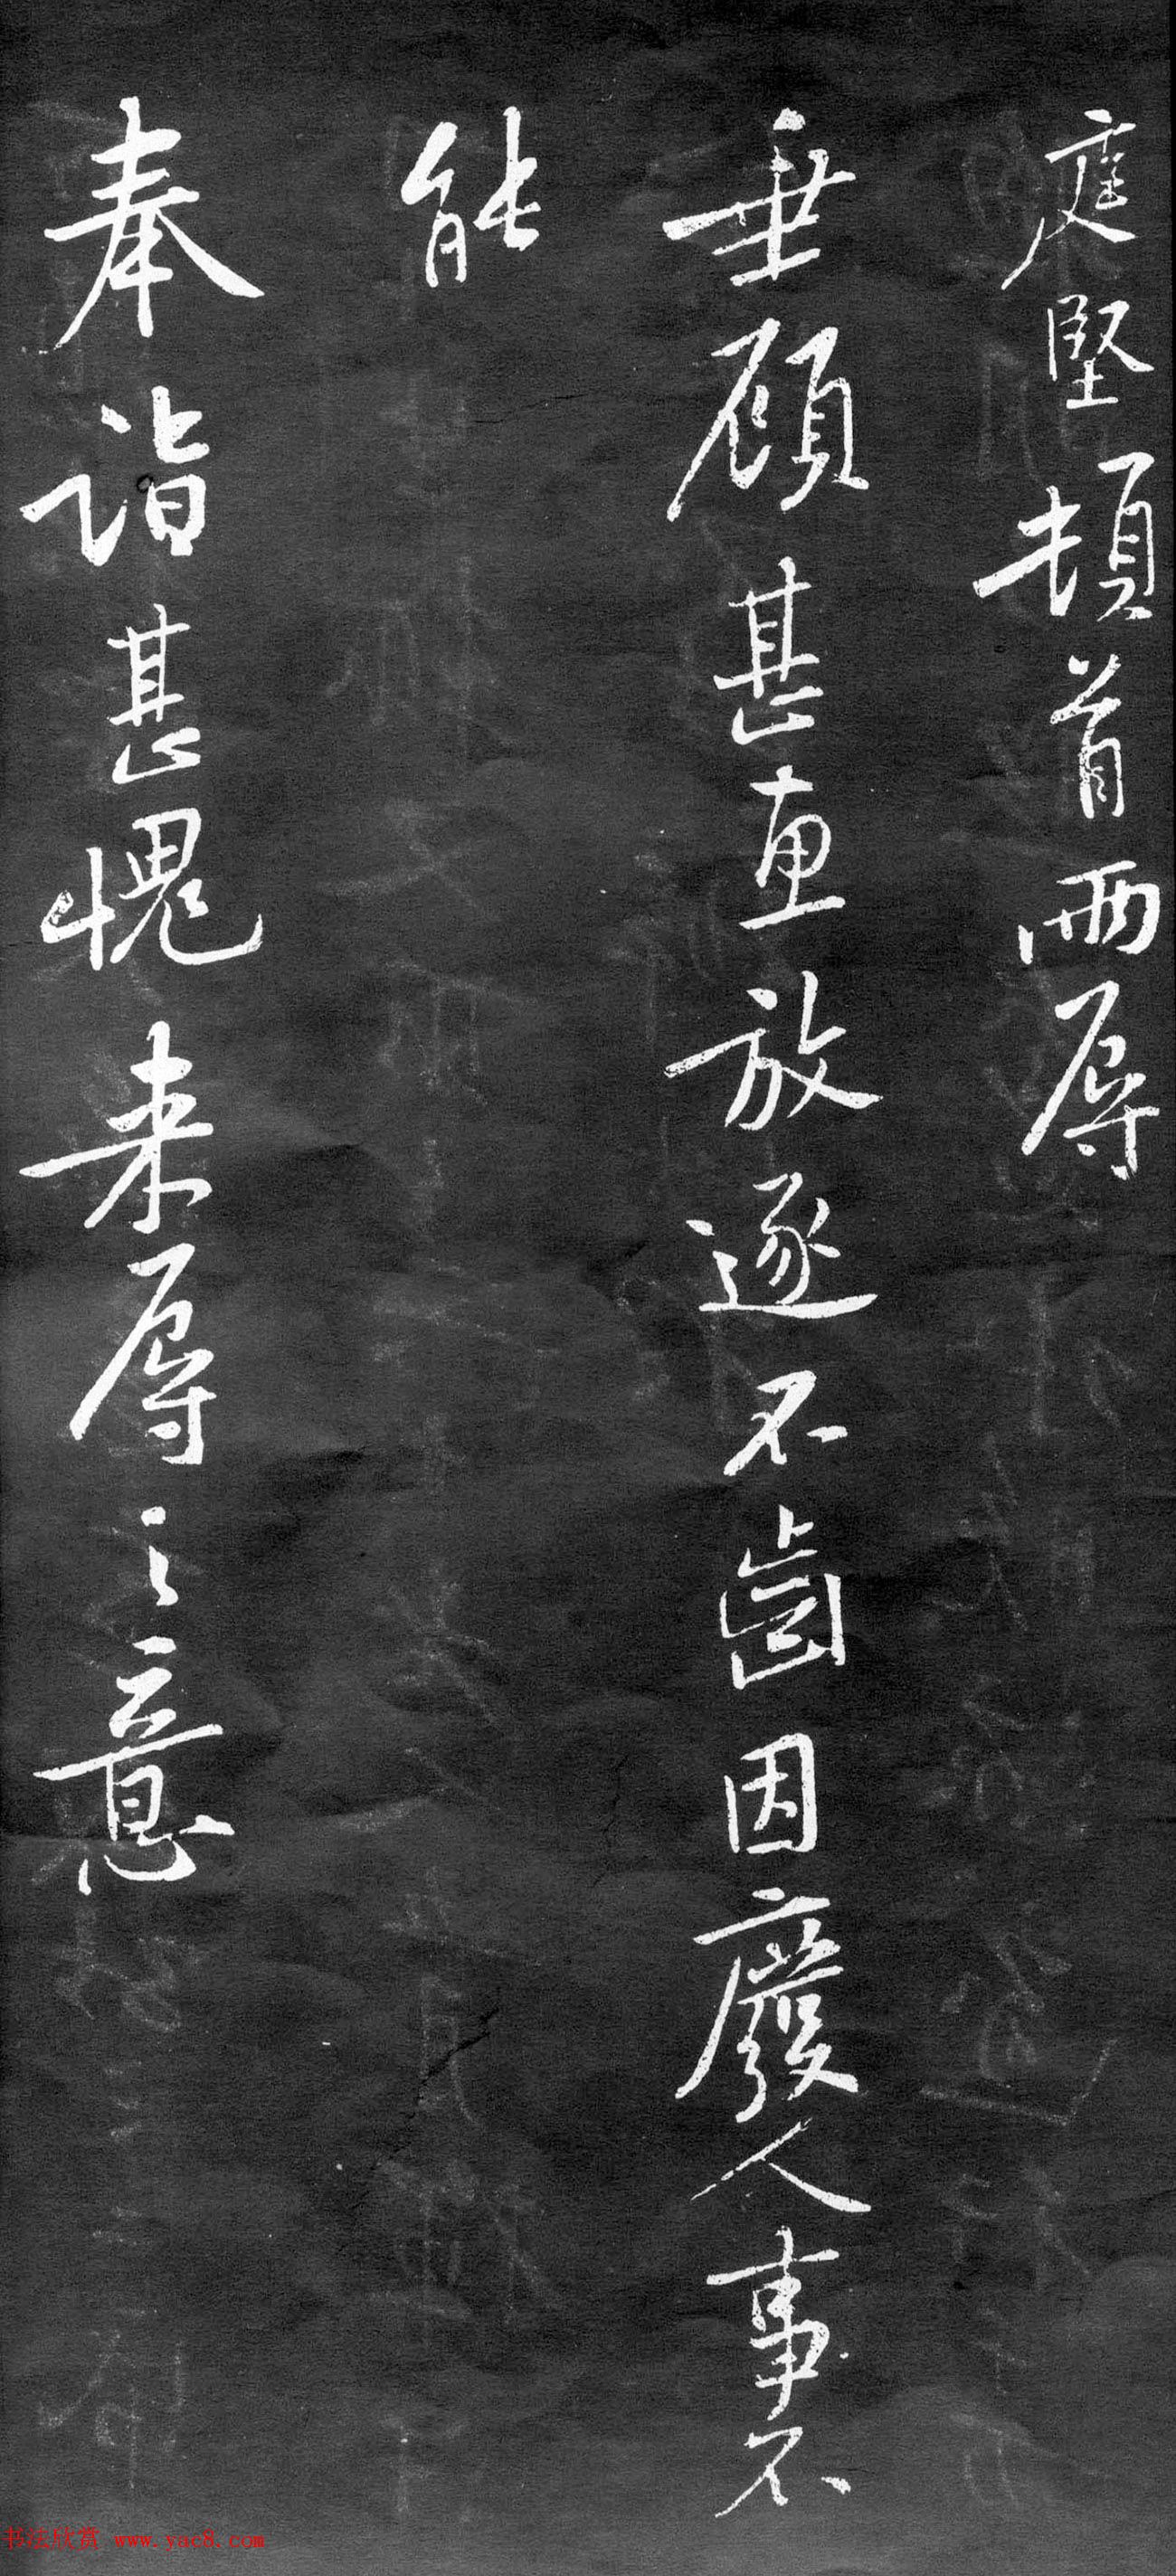 庭堅頓首兩辱
垂顧甚惠放逐不齒因廢人事不
能
奉詣甚愧來辱之意
书法欣赏 www.yac8.com